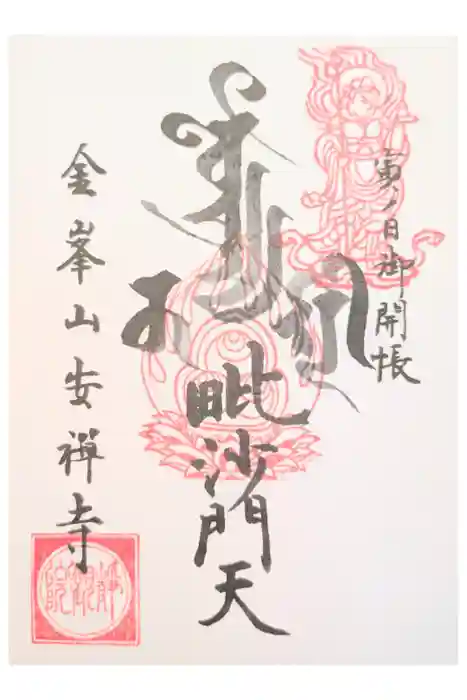 寅ノ日御開帳
毗沙門天
金峯山安禅寺